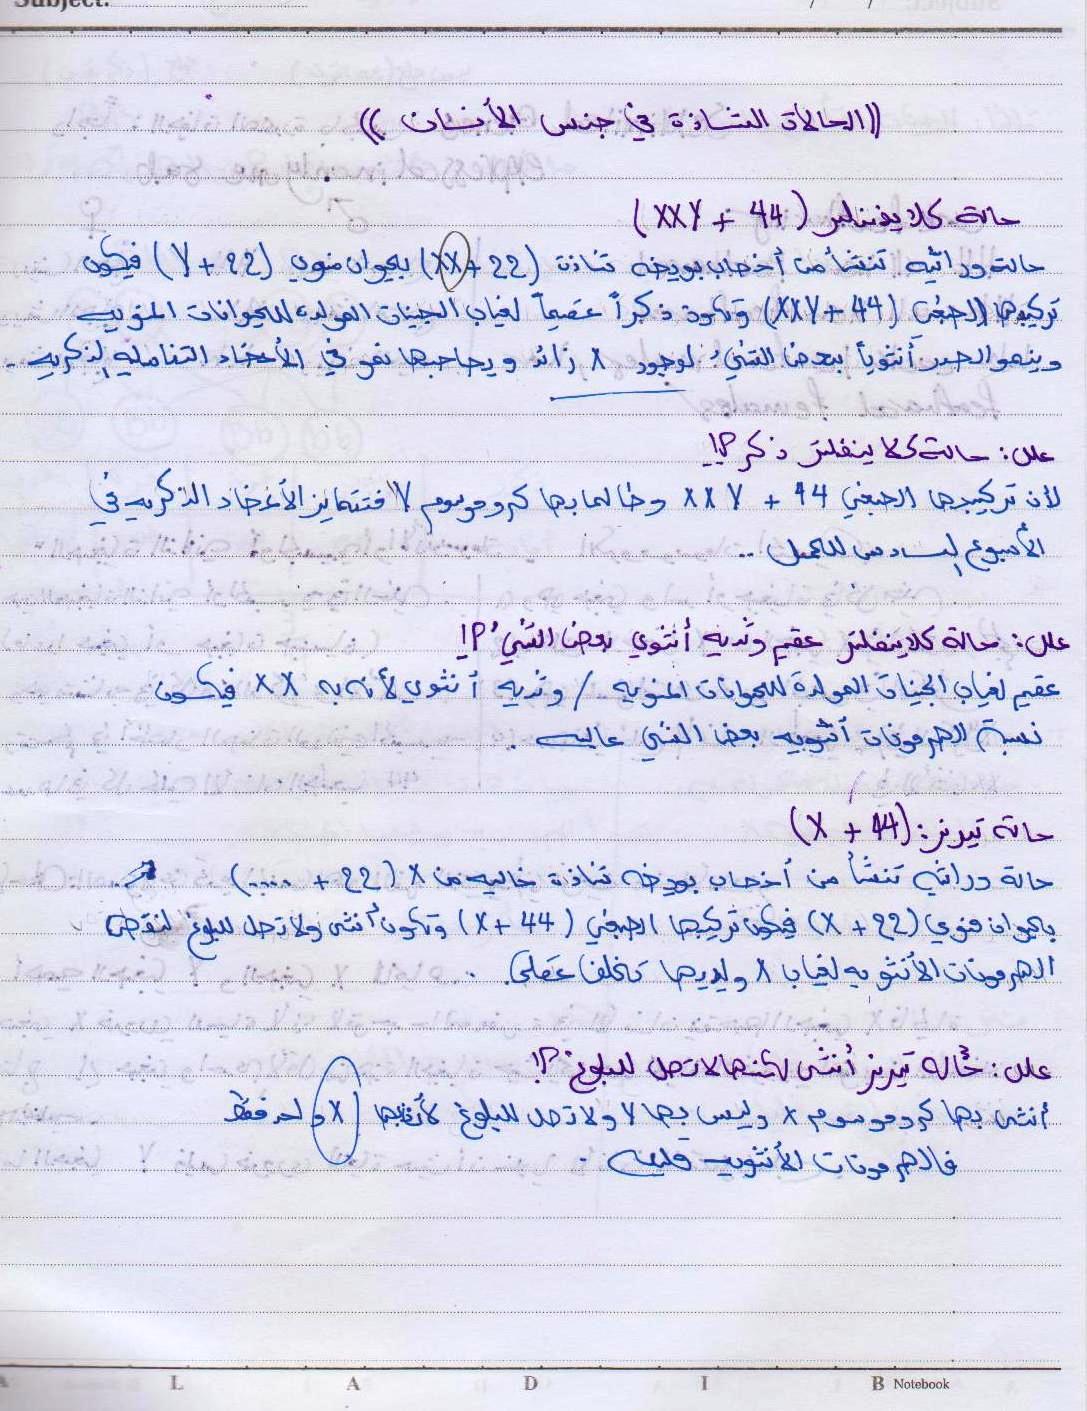 Subject:
/ /
((الحالات الشاذة في جنس الأنسان ))
حالة كلاينفلتر (44 + XXY)
حالة وراثية تنشأ من أخصاب بويضه شاذة (22 + XX) بحيوان منوي (22 + Y) فيكون
تركيبها الصبغي (44 + XXY) وتكون ذكراً عقيماً لغياب الجينات المولده للحيوانات المنويه
وينمو الصدر أنثوياً بعض الشيئ لوجود X زائد ويصاحبها نمو في الأعضاء التناسليه الذكريه .
علل : حالة كلاينفلتر ذكر ؟!
لأن تركيبها الصبغي 44 + XXY وطالما بها كروموسوم Y فتتمايز الأعضاء الذكريه في
الأسبوع السادس للحمل ..
علل : حالة كلاينفلتر عقيم وثديه أنثوي بعض الشيئ ؟!
عقيم لغياب الجينات المولدة للحيوانات المنويه / وثديه أنثوي لأنه به XX فيكون
نسبة الهرمونات أنثويه بعض الشي عاليه .
حالة تيرنر : (44 + X)
حالة وراثيه تنشأ من أخصاب بويضه شاذة خاليه من X (22 + ....)
بحيوان منوي (22 + X) فيكون تركيبها الصبغي (44 + X) وتكون أنثى ولا تصل للبلوغ لنقص
الهرمونات الأنثويه لغياب X ولديها تخلف عقلي . .
علل : حاله تيرنر أنثى لكنها لا تصل للبلوغ ؟!
أنثى بها كروموسوم X وليس بها Y ولا تصل للبلوغ لأن بها X واحد فقط
فالهرمونات الأنثويه قليله .
A L A D I B Notebook